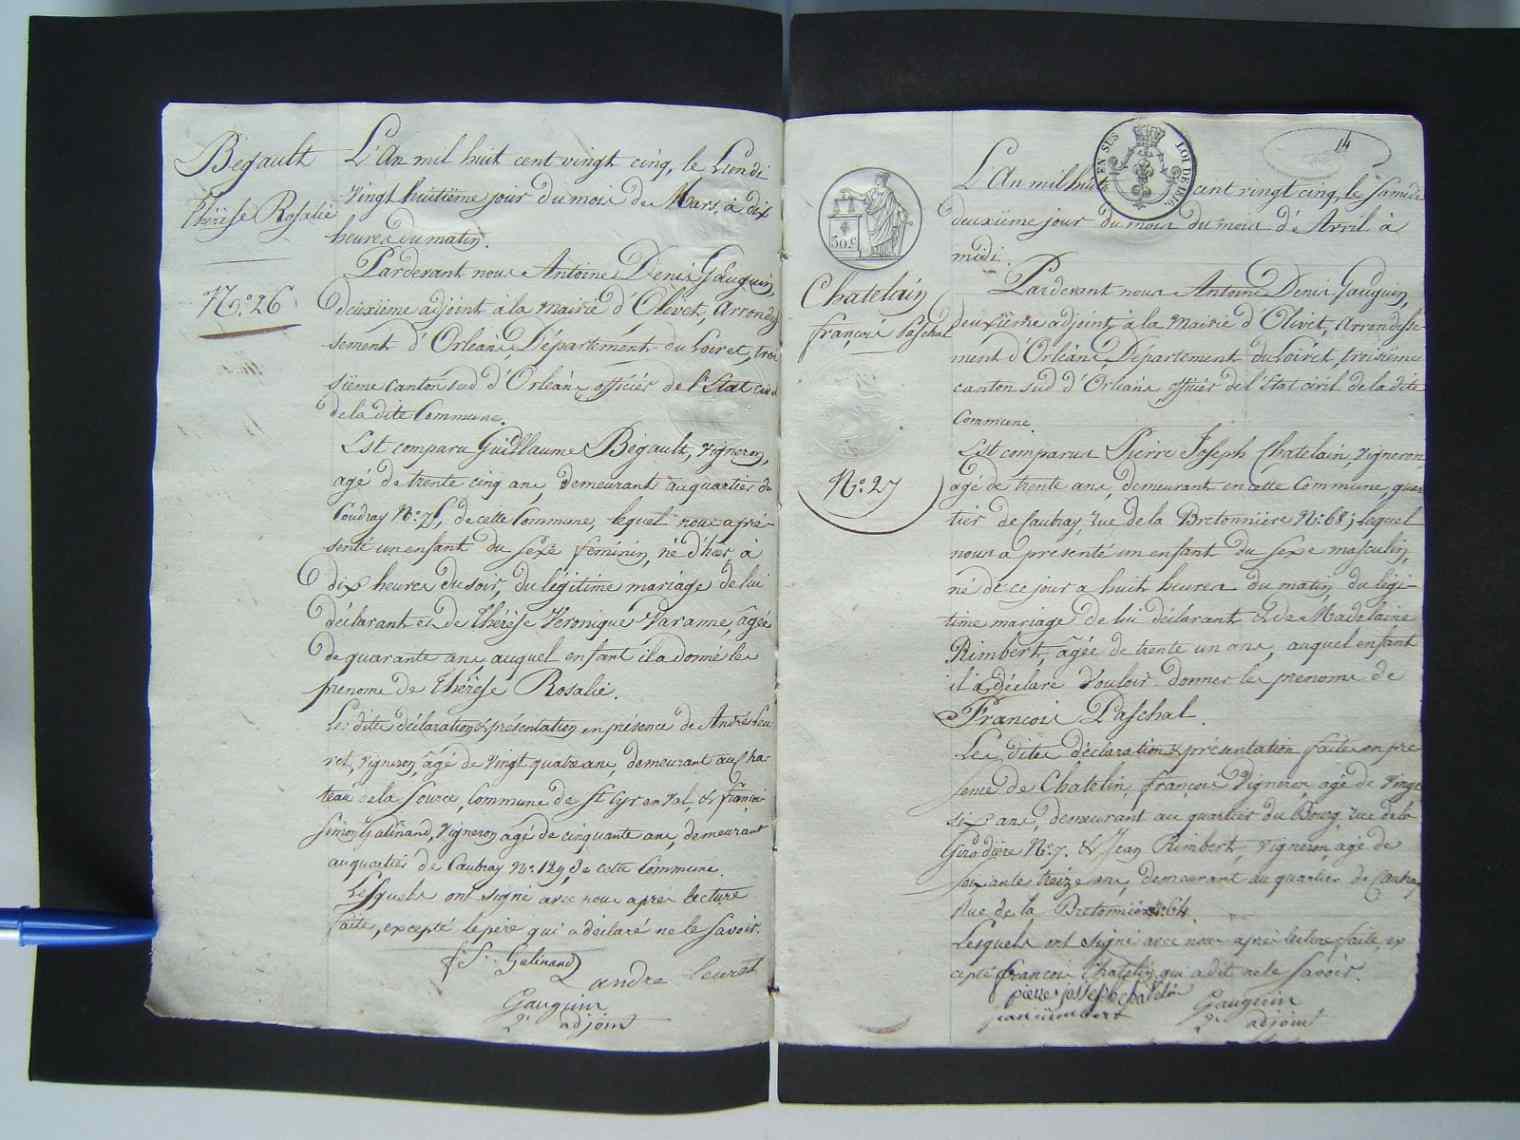 Bégault
Thérèse Rosalie
N.º 26
L'An mil huit cent vingt cinq, le Lundi
vingt huitième jour du mois de Mars, à dix
heures du matin.
Pardevant nous Antoine Denis Gauguin,
deuxième adjoint à la Mairie d'Olivet, Arrondis
sement d'Orléans, Département du Loiret, troi
sième canton sud d'Orléans, officier de l'Etat civil
de la dite Commune.
Est comparu Guillaume Bégault, vigneron,
agé de trente cinq ans, demeurant au quartier du
Coudray Nº 75, de cette Commune, lequel nous a pré-
senté un enfant du sexe féminin, né d'hier, à
dix heures du soir, du légitime mariage de lui
déclarant et de Thérèse Véronique Varanne, agée
de quarante ans, auquel enfant il a donné les
prenoms de Thérèse Rosalie.
Les dites déclaration & présentation en présence de André Leu
ret, vigneron, âgé de vingt quatre ans, demeurant au Cha
teau de la Source, Commune de St Cyr en Val, & françois
Simon Galinand, vigneron agé de cinquante ans, demeurant
au quartier de Caubray Nº 129, de cette Commune.
Lesquels ont signé avec nous après lecture
faite, excepté le père qui a déclaré ne le savoir.
f. S. Galinand
andre leuret
Gauguin
2e adjoint
14
EN SUS
LOI DE 1816
50 c
Chatelain
françois Paschal
Nº 27
L'An mil huit cent vingt cinq, le samedi
deuxième jour du mois du mois d'Avril à
midi.
Pardevant nous Antoine Denis Gauguin,
deuxième adjoint à la Mairie d'Olivet, Arrondisse
ment d'Orléans, Département du Loiret, troisième
canton sud d'Orléans, officier de l'Etat civil de la dite
Commune.
Est comparu Pierre Joseph Chatelain, vigneron,
agé de trente ans, demeurant en cette Commune, quar
tier de Caubray, rue de la Bretonnière Nº 68; lequel
nous a presenté un enfant du sexe masculin,
né de ce jour a huit heures du matin, du légi-
time mariage de lui déclarant & de Madelaine
Rimbert, âgée de trente un ans, auquel enfant
il a déclaré vouloir donner les prenoms de
François Paschal.
Les dites déclaration & présentation faites en pré
sence de Chatelin, françois vigneron agé de vingt
six ans, demeurant au quartier du Bourg rue de la
Girodière Nº 7. & Jean Rimbert, vigneron, agé de
soixante treize ans, demeurant au quartier de Caubray
Rue de la Bretonnière nº 64.
Lesquels ont signé avec nous après lecture faite, ex
cepté françois Chatelin, qui a dit ne le savoir.
pierre jossephe chatelin
jean rimbert
Gauguin
2e adjoint